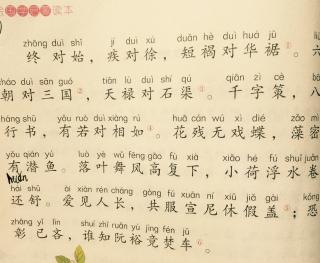 读本
zhōng duì shǐ jí duì xú duǎn hè duì huá jū liù
终对始，疾对徐，短褐对华裾①。六
cháo duì sān guó tiān lù duì shí qú qiān zì cè bā
朝对三国②，天禄对石渠③。千字策，八
háng shū yǒu ruò duì xiàng rú huā cán wú xì dié zǎo mì
行书，有若对相如④。花残无戏蝶，藻密
yǒu qián yú luò yè wǔ fēng gāo fù xià xiǎo hé fú shuǐ juǎn
有潜鱼。落叶舞风高复下，小荷浮水卷
huán
hái shū ài jiàn rén cháng gòng fú xuān ní xiū jiǎ gài kǒng
还舒。爱见人长，共服宣尼休假盖⑤；恐
zhāng yǐ lìn shuí zhī ruǎn yù jìng fén chē
彰已吝，谁知阮裕竟焚车⑥。